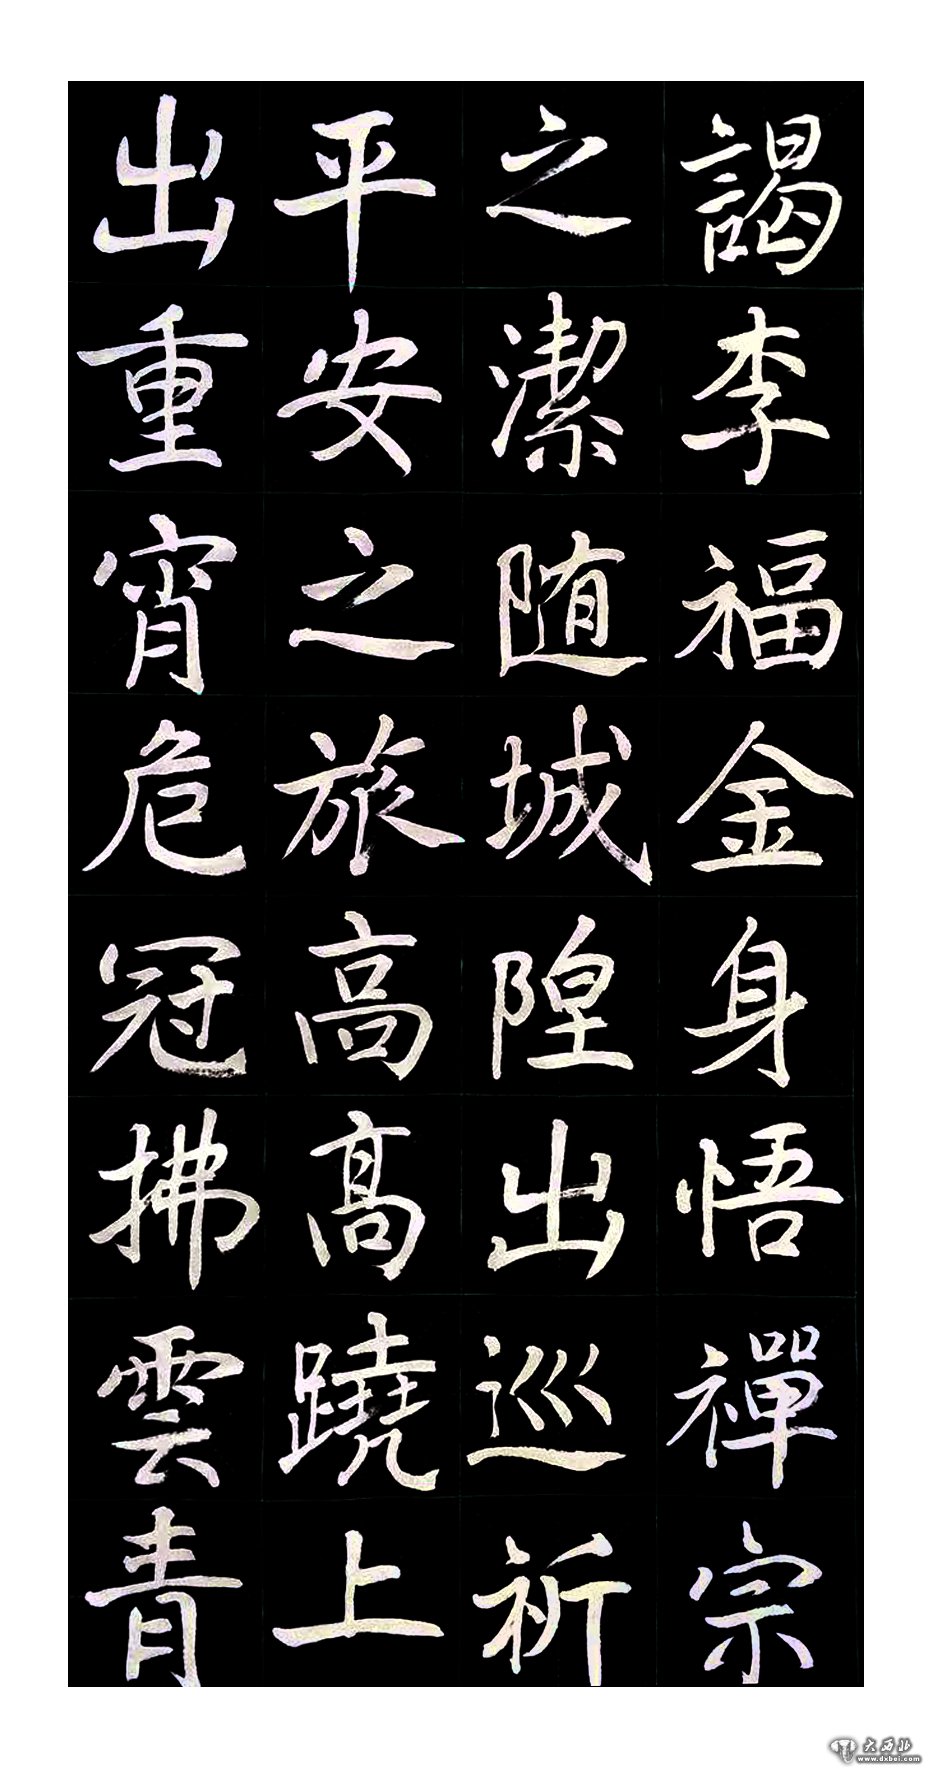 謁李福金身悟禪宗
之潔随城隍出巡祈
平安之旅高高蹺上
出重宵危冠拂雲青
大西北
www.dxbei.com